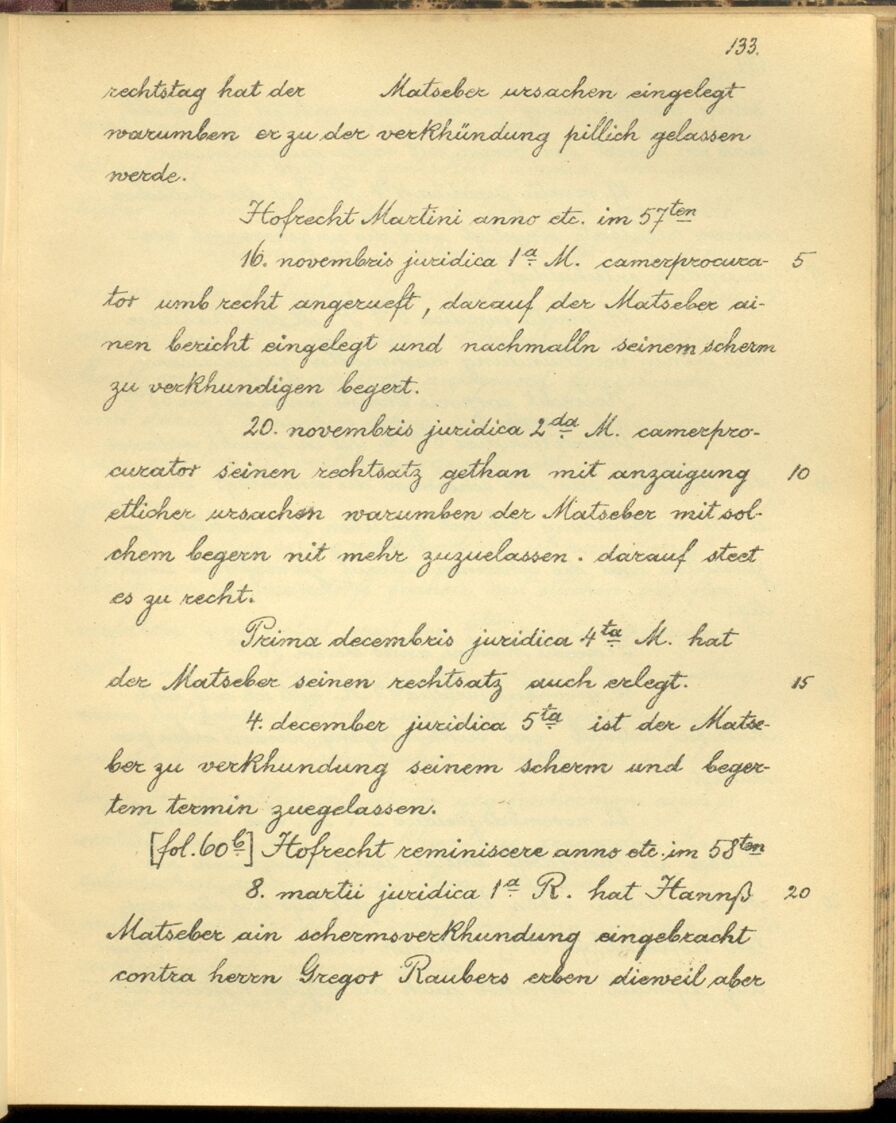 133.
rechtstag hat der Matseber ursachen eingelegt
warumben er zu der verkhündung pillich gelassen
werde.
Hofrecht Martini anno etc. im 57ten
16. novembris juridica 1a M. camerprocura- 5
tor umb recht angerueft, darauf der Matseber ai-
nen bericht eingelegt und nachmalln seinem scherm
zu verkhundigen begert.
20. novembris juridica 2da M. camerpro-
curator seinen rechtsatz gethan mit anzaigung 10
etlicher ursachen warumben der Matseber mit sol-
chem begern nit mehr zuzuelassen. darauf steet
es zu recht.
Prima decembris juridica 4ta M. hat
der Matseber seinen rechtsatz auch erlegt. 15
4. december juridica 5ta ist der Matse-
ber zu verkhundung seinem scherm und beger-
tem termin zuegelassen.
[fol. 60b] Hofrecht reminiscere anno etc. im 58ten
8. martii juridica 1a R. hat Hannß 20
Matseber ain schermsverkhundung eingebracht
contra herrn Gregor Raubers erben dieweil aber